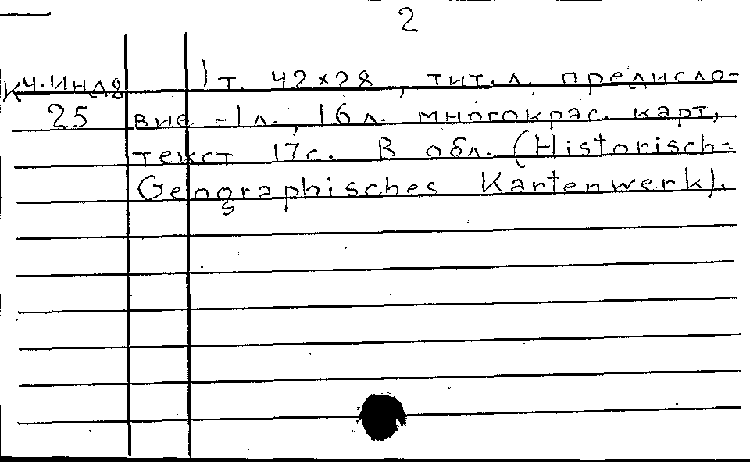 2
Кч.Инд8 1т. 42×28, тит.л. предисло-
25 вие -1л., 16л. многокрас. карт,
текст 17с. В обл. (Historisch-
Geographisches Kartenwerk).